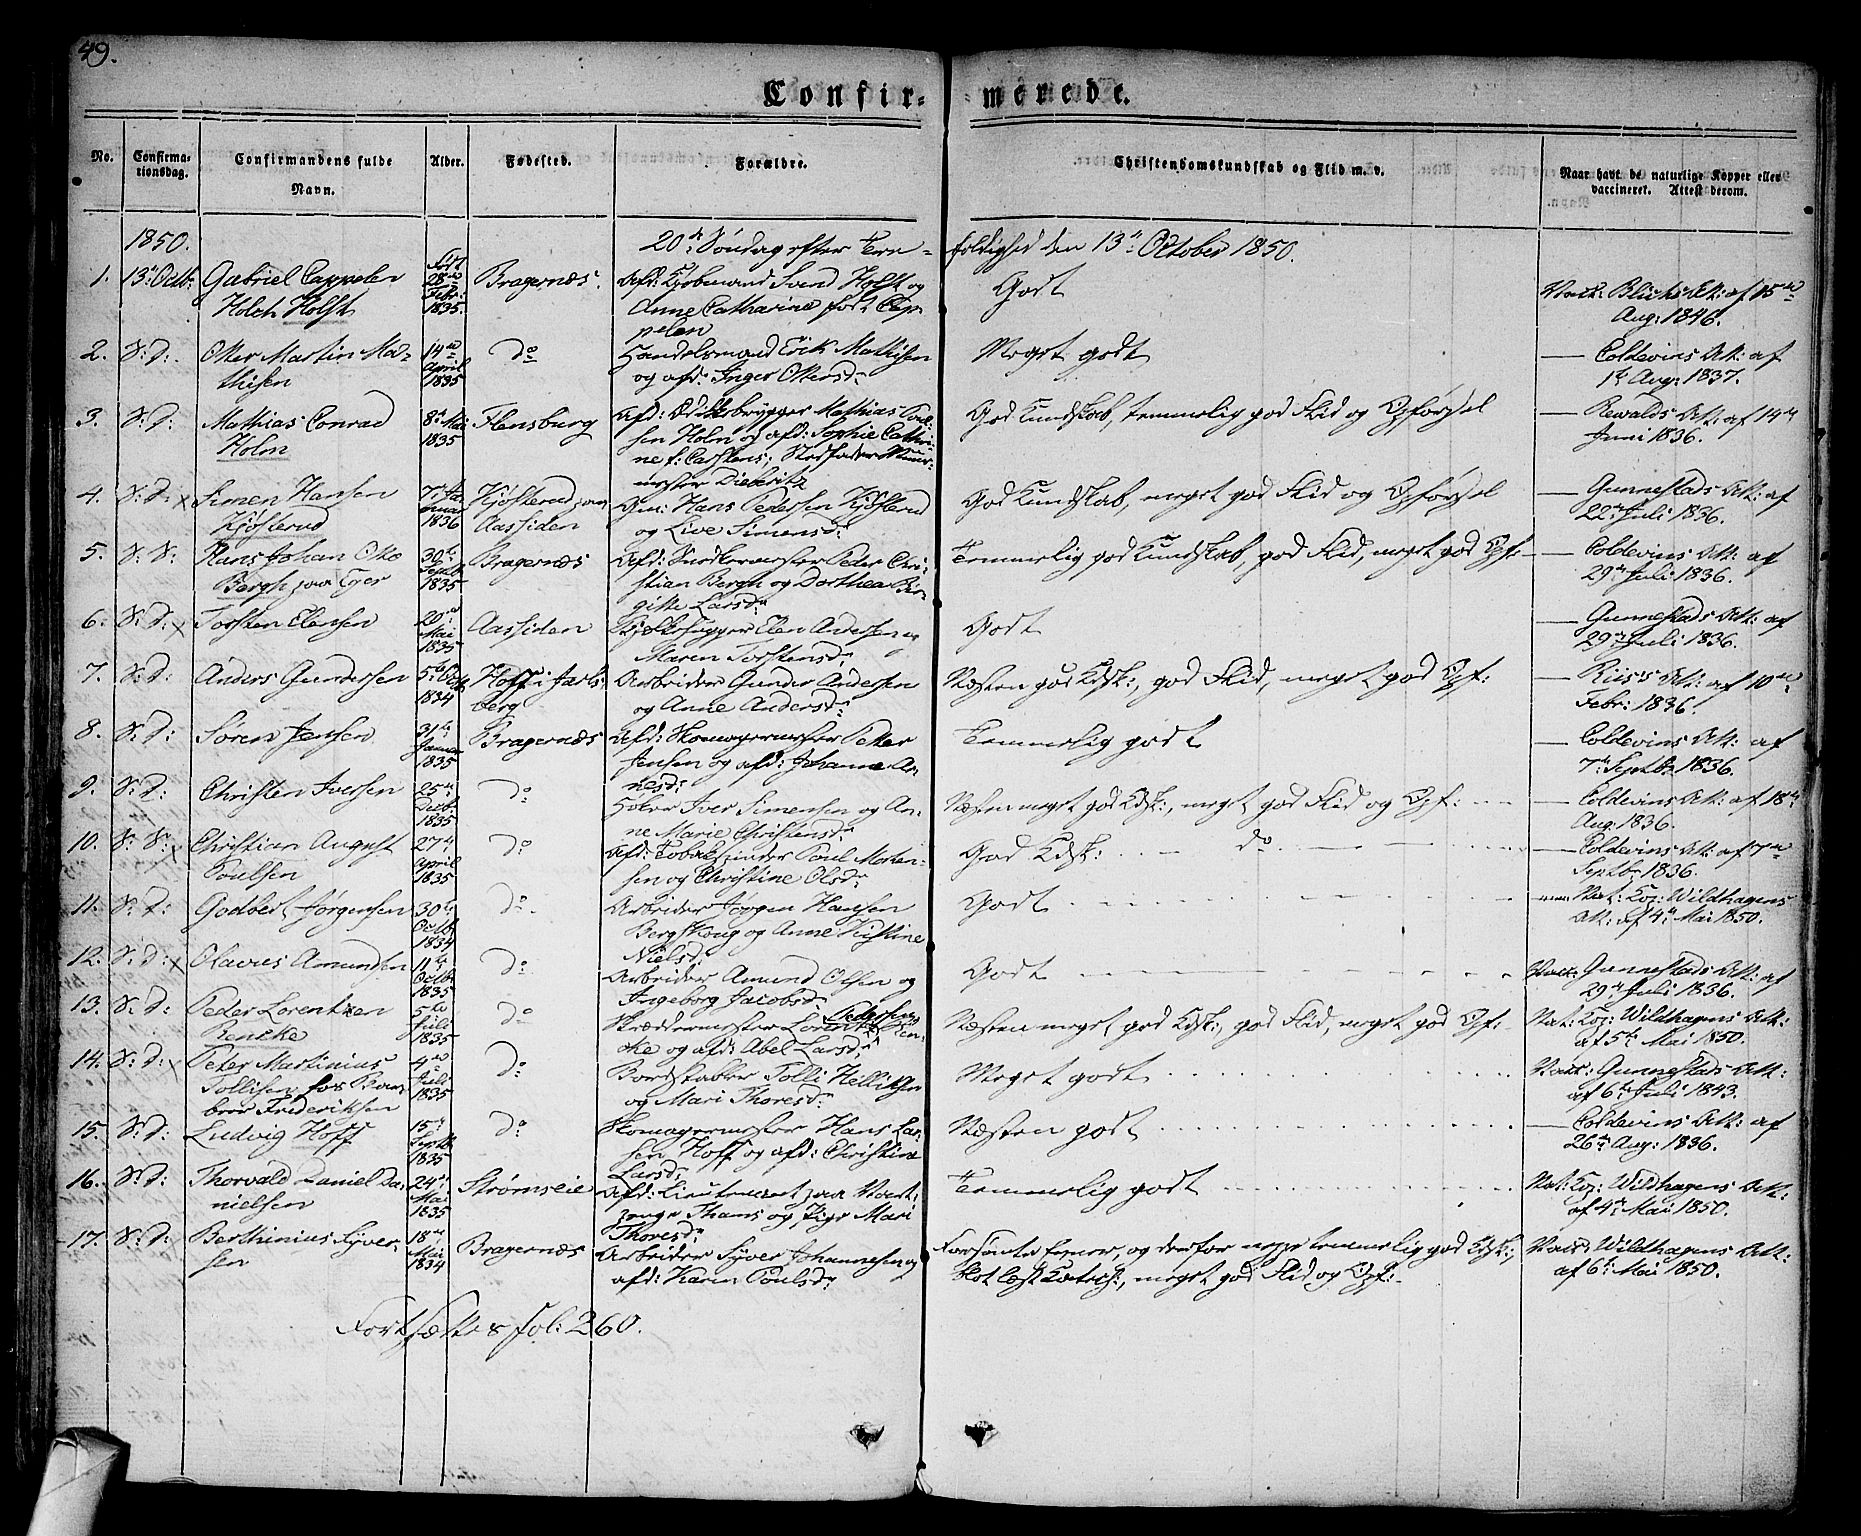 49.
Confir-merede.
No.
Confirma-
tionsdag.
Confirmandens fulde
Navn.
Alder.
Fødested.
Forældre.
Christendomskundskab og Flid m. v.
Naar havt de naturlige Kopper eller
vaccineret. Attest derom.
1850. 20de Søndag efter Tre-foldighed den 13de October 1850.
1. 13de Octb: Gabriel Cappelen Holch Holst
Født 28de Febr: 1835.
Bragernæs.
Afd: Kjøbmand Svend Holst og
Anne Catharine født Cap-
pelen
Godt
Vacc: Blichs Att: af 15de
Aug: 1846.
2. S: D: Otter Martin Ma-
thisen
14de April 1835
do
Handelsmand Erik Mathisen
og afd: Inger Ottersd:
Meget godt
— Coldevins Att: af
1ste Aug: 1837.
3. S: D: Mathias Conrad
Holm
8de Mai 1835
Flensburg
Afd: Mathias Poul-
sen Holm og afd: Sophie Cathri-
ne f: Carstens; Stedfader Muur-
mester Dieberitz
God Kundskab, temmelig god Flid og Opførsel
— Rewalds Att: af 14de
Juni 1836.
4. S: D: x Simen Hansen
Kjøsterud
7de Januar 1836
Kjøsterud paa
Aassiden
Gm: Hans Pedersen Kjøsterud
og Live Simensd:
God Kundskab, meget god Flid og Opførsel
— Gunnestads Att: af
22de Juli 1836.
5. S: S: Hans Johan Otto
Bergh paa Eger
30te Septb 1835
Bragernæs
Afd: Snedkermester Peder Chri-
stian Bergh og Dorthea Bir-
gitte Larsd:
Temmelig god Kundskab, god Flid, meget god Opf:
— Coldevins Att: af
29de Juli 1836.
6. S: D: x Torsten Elensen
20de Mai 1835
Aassiden
Tjolkehugger Elen Andersen og
Maren Torstensd:
Godt
— Gunnestads Att: af
29de Juli 1836.
7. S: D: Anders Gundersen
5te Octb 1834
Hoff i Jarls-
berg
Arbeider Gunder Andersen
og Anne Andersd:
Næsten god Kdsk:, god Flid, meget god Opf:
— Riiss Att: af 10de
Febr: 1836.
8. S: D: Søren Jensen
31te Januar 1835
Bragernæs
Afd: Skomagermester Petter
Jensen og afd: Johanne Ar-
nesd:
Temmelig godt
— Coldevins Att: af
7de Septb 1836.
9. S: D: Christen Iversen
25de Decb: 1835
do
Hover Iver Simensen og An-
ne Marie Christensd:
Næsten meget god Kdsk:, meget god Flid og Opf:
— Coldevins Att: af 18de
Aug: 1836.
10. S: S: x Christian August
Poulsen
27de April 1835
do
Afd: Tobakspinder Poul Morten-
sen og Christine Olsd:
God Kdsk: — do
— Coldevins Att: af 7de
Septb: 1836.
11. S: D: Godbert Jørgensen
30te Octb 1834
do
Arbeider Jørgen Hansen
Bergskoug og Anne Kistine
Nielsd:
Godt
Nat: Kop: Wildhagens
Att: af 4de Mai 1850.
12. S: D: x Olavus Amundsen
11te Octb: 1835
do
Arbeider Amund Olsen og
Ingeborg Jacobsd:
Godt
Vacc: Gunnestads Att: af
29de Juli 1836.
13. S: D: Peder Lorentzen
Rencke
5te Juli 1835
do
Skræddermester Lorentz Pedersen Ren-
cke og afd: Abel Larsd:
Næsten meget god Kdsk:, god Flid, meget god Opf:
Nat: Kop: Wildhagens Att:
af 5te Mai 1850.
14. S: D: x Peter Martinius
Tollisen for
Frederiksen
4de Juli 1835
do
Bordstabler Tolli Hellichsen
og Mari Thoresd:
Meget godt
Vacc: Gunnestads Att:
af 6te Juli 1843.
15. S: D: Ludvig Hoff
15de Septb 1835
do
Skomagermester Hans Lar-
sen Hoff og afd: Christine
Larsd:
Næsten godt
— Coldevins Att: af
26de Aug: 1836.
16. S: D: Thorvald Daniel Da-
nielsen
24de Mai 1835
Strømseie
Afd: Lieutenant paa Vart-
penge Thams og Pige Mari
Thoresd:
Temmelig godt
Nat: Kop: Wildhagens Att:
af 4de Mai 1850.
17. S: D: Berthinius Syver-
sen
18de Mai 1834
Bragernæs
Arbeider Syver Johannesen og
afd: Karen Poulsd:
Forsømte Evner, og derfor neppe temmelig god Kdsk:,
blot læst Katech:, meget god Flid og Opf:
Vacc: Wildhagens Att:
af 6te Mai 1850.
Fortsættes fol: 260.